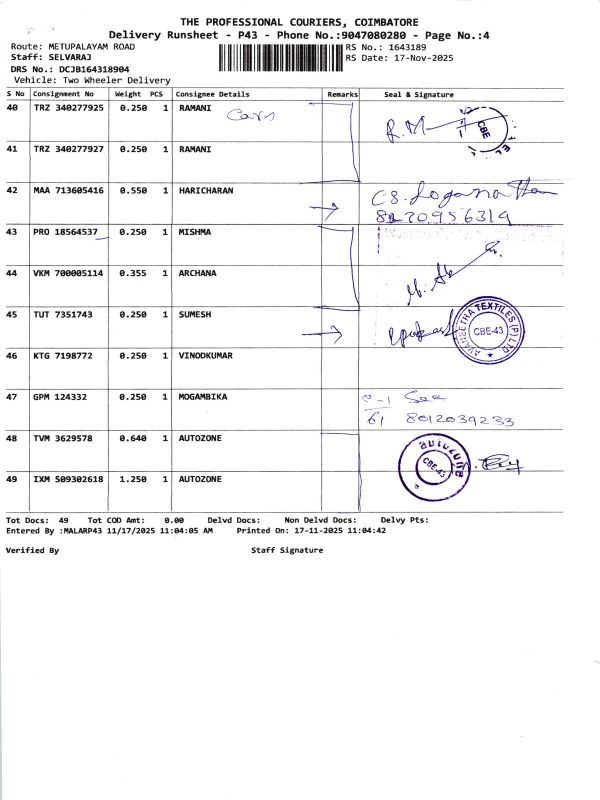 THE PROFESSIONAL COURIERS, COIMBATORE
Delivery Runsheet - P43 - Phone No.:9047080280 - Page No.:4
Route: METUPALAYAM ROAD RS No.: 1643189
Staff: SELVARAJ RS Date: 17-Nov-2025
DRS No.: DCJB164318904
Vehicle: Two Wheeler Delivery
S No Consignment No Weight PCS Consignee Details Remarks Seal & Signature
40 TRZ 340277925 0.250 1 RAMANI R.M CBE
41 TRZ 340277927 0.250 1 RAMANI
42 MAA 713605416 0.550 1 HARICHARAN
43 PRO 18564537 0.250 1 MISHMA
44 VKM 700005114 0.355 1 ARCHANA
45 TUT 7351743 0.250 1 SUMESH AVANEETHA TEXTILES (P) LTD CBE-43
46 KTG 7198772 0.250 1 VINODKUMAR
47 GPM 124332 0.250 1 MOGAMBIKA
61 8012039233
48 TVM 3629578 0.640 1 AUTOZONE autozone CBE-43
49 IXM 509302618 1.250 1 AUTOZONE
Tot Docs: 49 Tot COD Amt: 0.00 Delvd Docs: Non Delvd Docs: Delvy Pts:
Entered By :MALARP43 11/17/2025 11:04:05 AM Printed On: 17-11-2025 11:04:42
Verified By Staff Signature